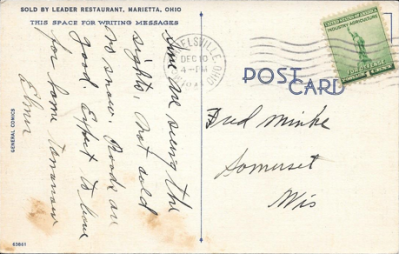 SOLD BY LEADER RESTAURANT, MARIETTA, OHIO
THIS SPACE FOR WRITING MESSAGES
Am seeing the
sights. Not cold
no snow. Roads are
good. Expect to leave
for home tomorrow
Elmer
GENERAL COMICS
63861
ELSVILLE
DEC 10
4-PM
OHIO
POST CARD
UNITED STATES OF AMERICA
INDUSTRY AGRICULTURE
FOR DEFENSE
Fred Minke
Somerset
Wis